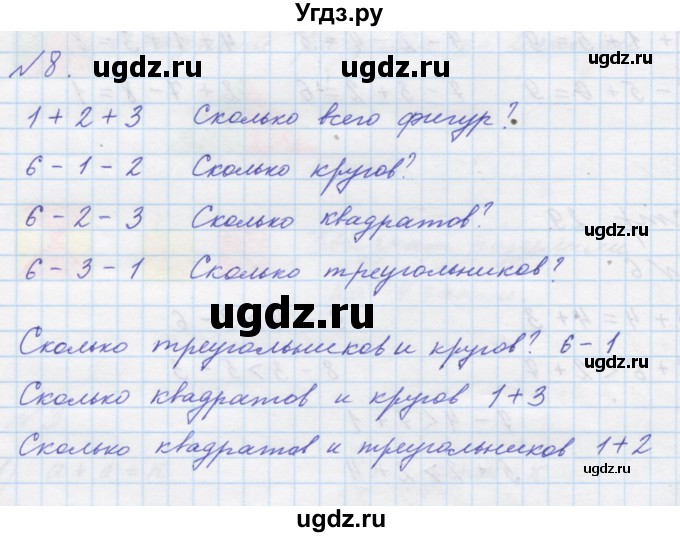 Угдз.ру
№8. ugdz.ru ugdz.ru
1 + 2 + 3 Сколько всего фигур?
ugdz.ru
6 - 1 - 2 Сколько кругов?
6 - 2 - 3 Сколько квадратов?
ugdz.ru ugdz.ru
6 - 3 - 1 Сколько треугольников?
ugdz.ru
Сколько треугольников и кругов? 6 - 1
ugdz.ru
Сколько квадратов и кругов 1 + 3
Сколько квадратов и треугольников 1 + 2
ugdz.ru ugdz.ru
ugdz.ru